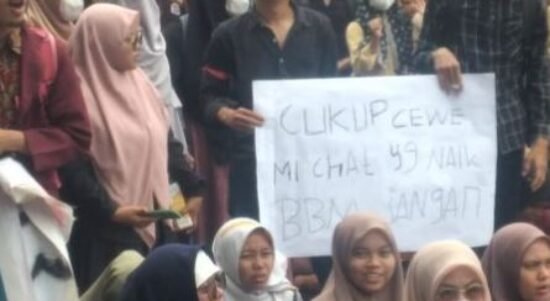 CUKUP CEWE
MI CHAT yg NAIK
BBM JANGAN